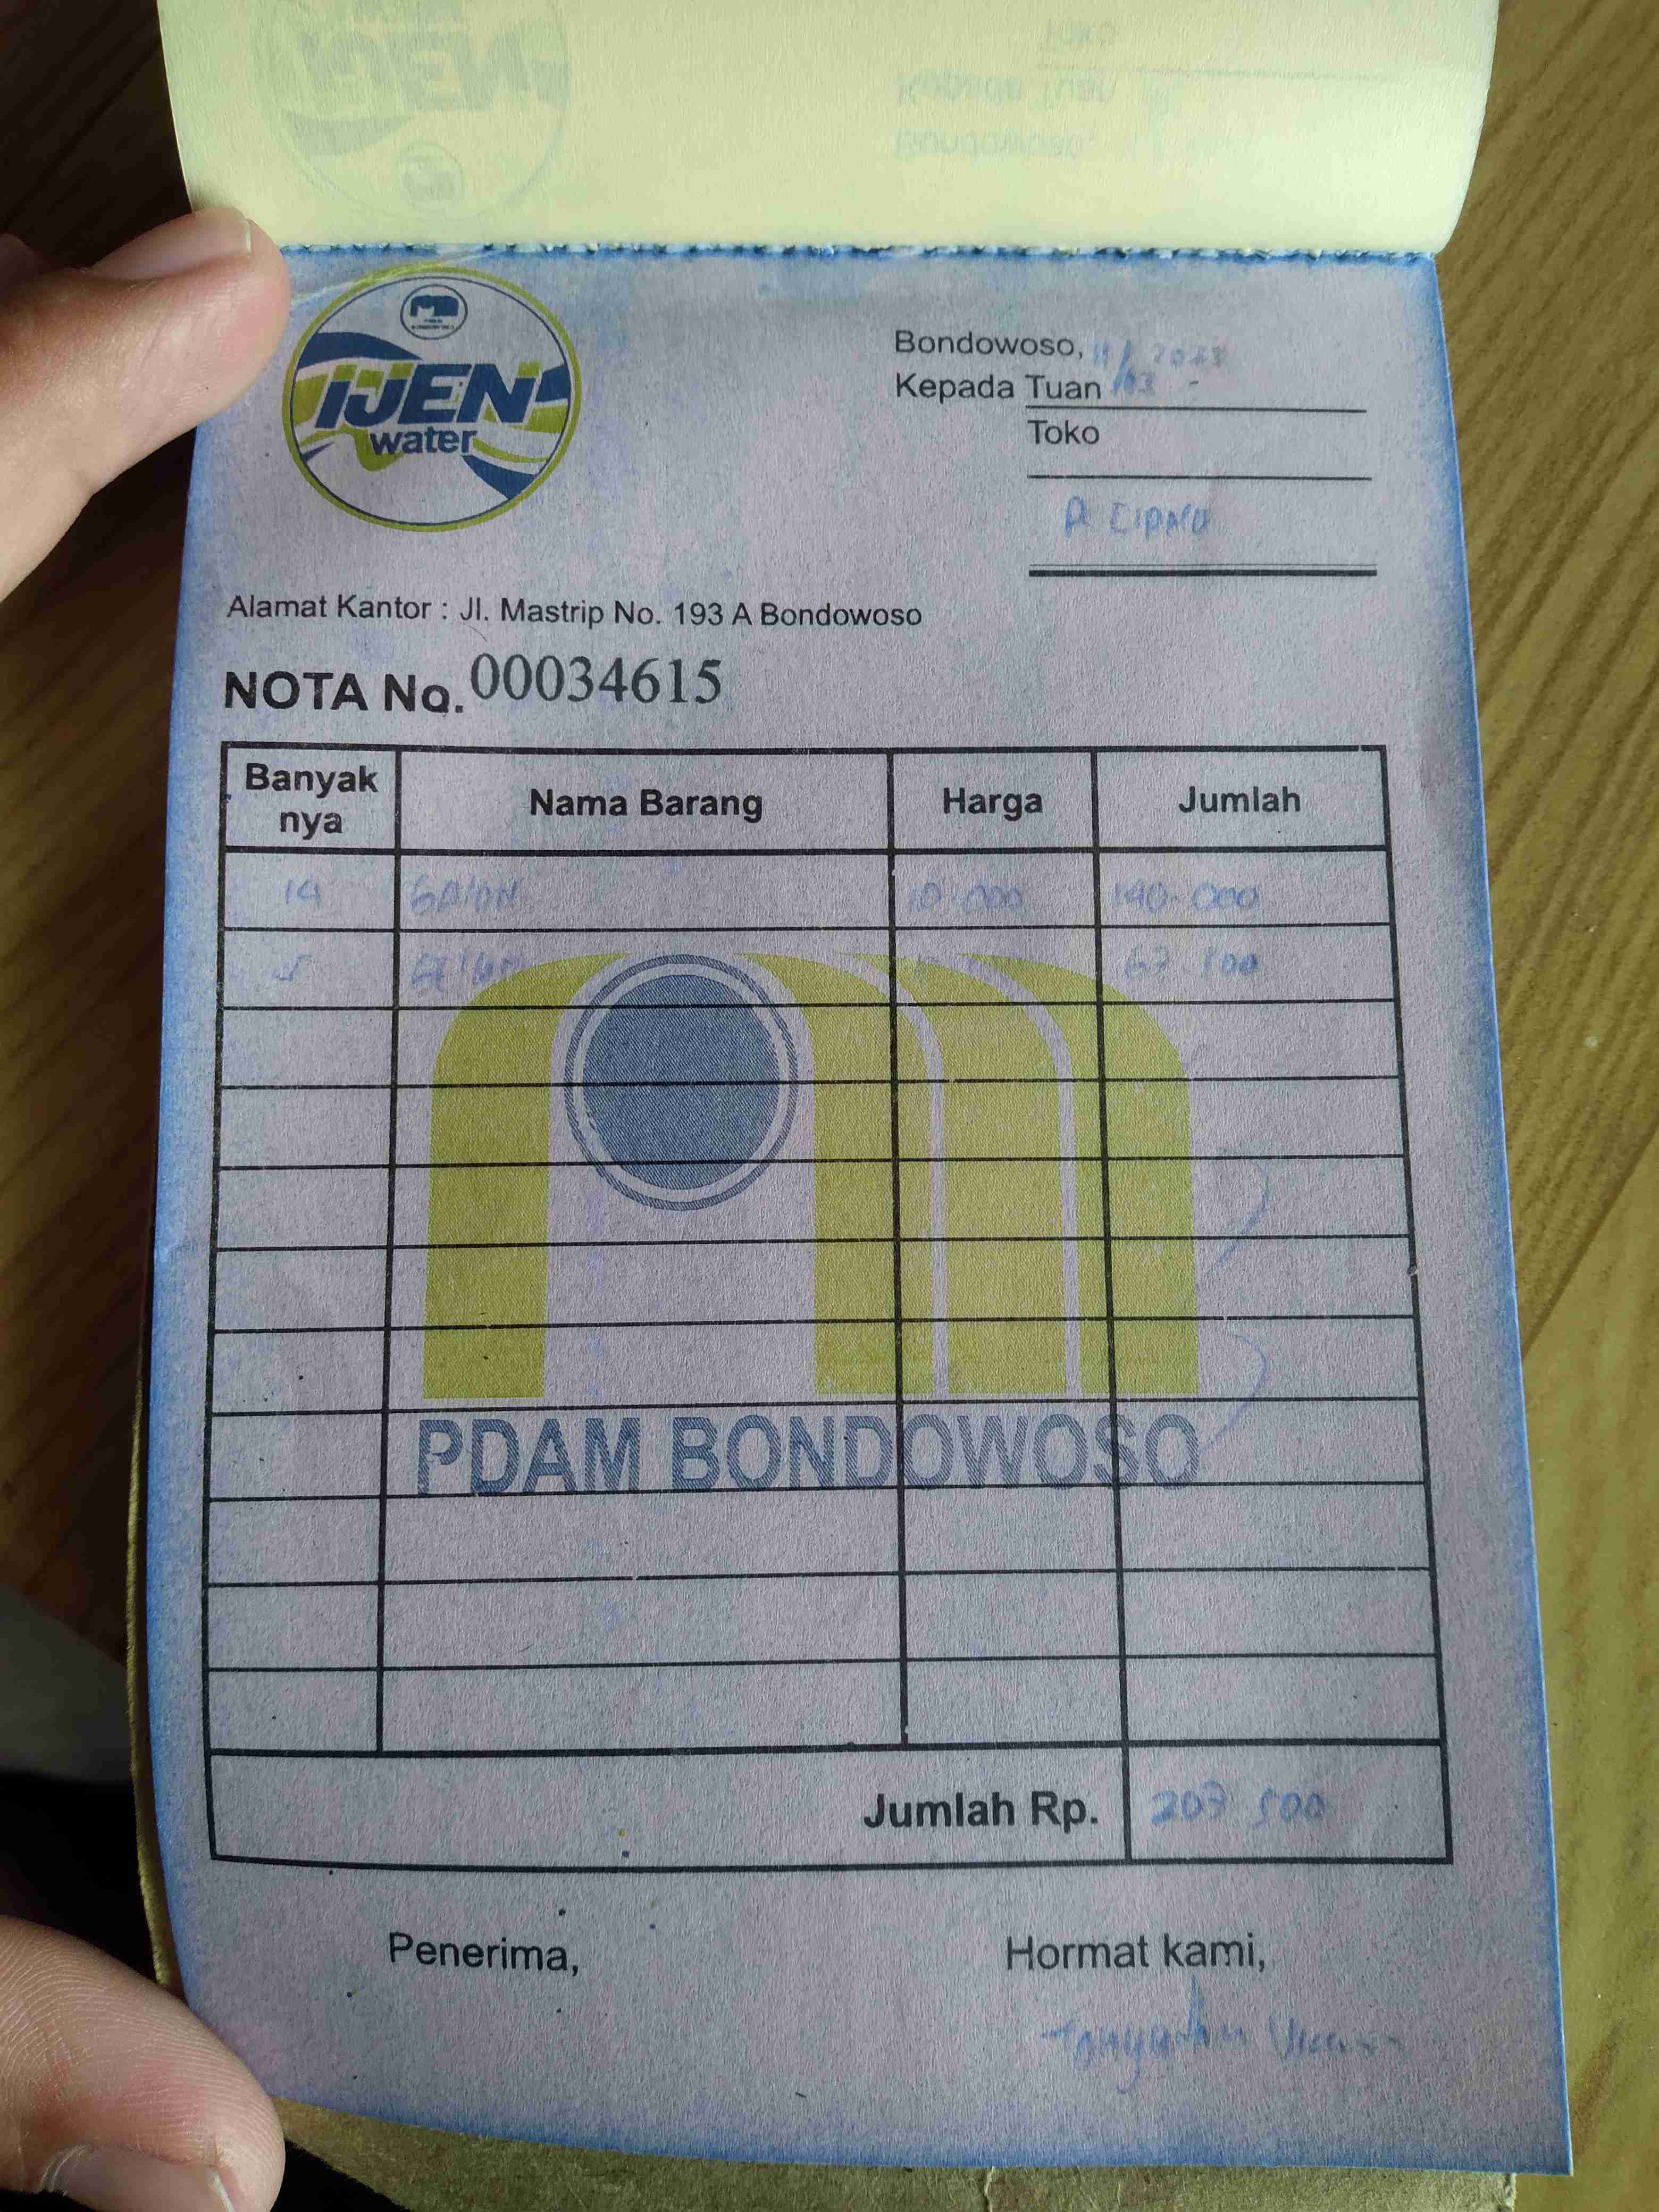 IJEN
water
Bondowoso, 11/03 2023
Kepada Tuan
Toko
P CIPNO
Alamat Kantor : Jl. Mastrip No. 193 A Bondowoso
NOTA No. 00034615
Banyak nya Nama Barang Harga Jumlah
14 GAlON 10.000 140.000
5 67 500
PDAM BONDOWOSO
Jumlah Rp. 207 500
Penerima, Hormat kami,